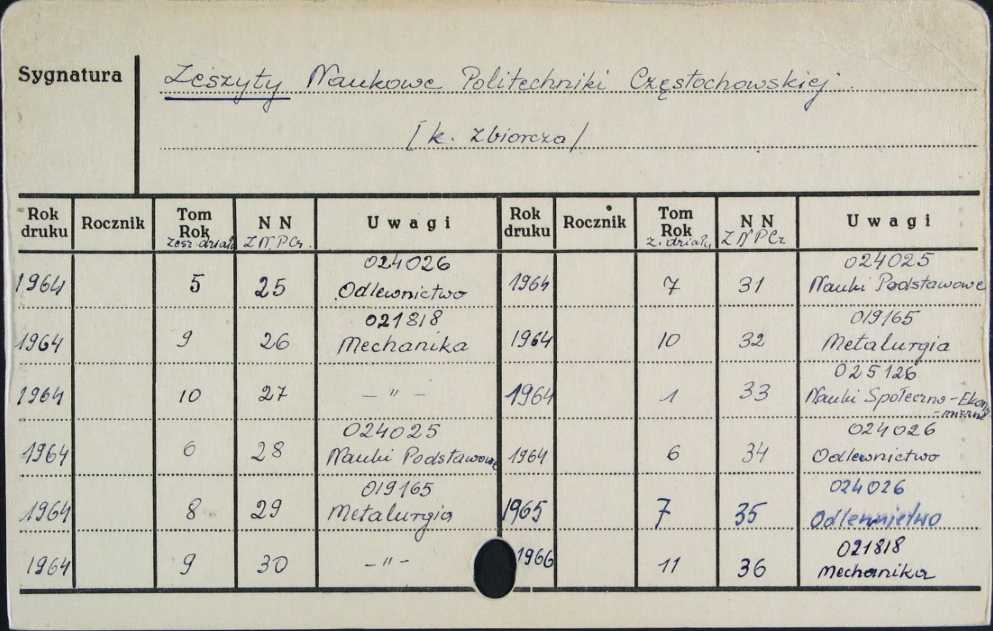 Sygnatura
Zeszyty Naukowe Politechniki Częstochowskiej
[k. zbiorcza]
Rok druku Rocznik Tom Rok zesz. działu N N Z N P Cz. Uwagi Rok druku Rocznik Tom Rok z. działu N N Z N P Cz Uwagi
1964 5 25 024026 Odlewnictwo 1964 7 31 024025 Nauki Podstawowe
1964 9 26 021818 Mechanika 1964 10 32 019165 Metalurgia
1964 10 27 – " – 1964 1 33 025126 Nauki Społeczno-Ekonomiczne
1964 6 28 024025 Nauki Podstawowe 1964 6 34 024026 Odlewnictwo
1964 8 29 019165 Metalurgia 1965 7 35 024026 Odlewnictwo
1964 9 30 – " – 1966 11 36 021818 Mechanika